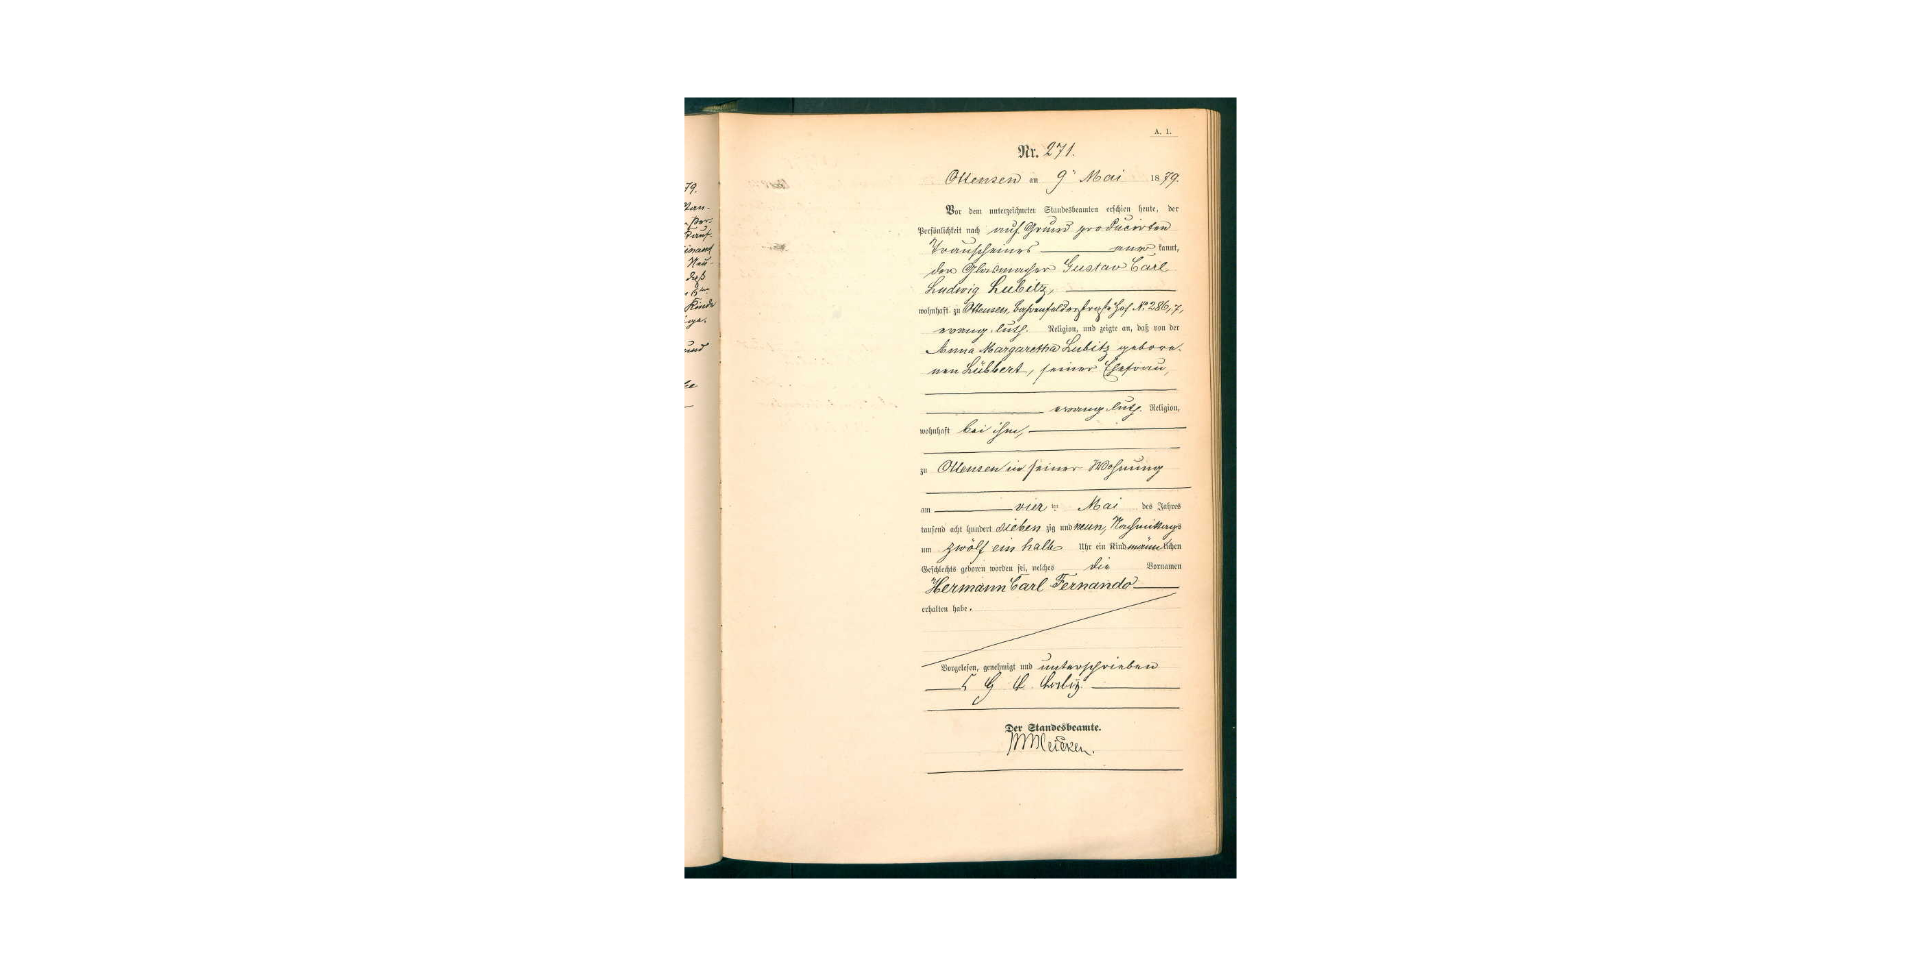 A. 1.
Nr. 271.
Ottensen am 9t Mai 1879.
Vor dem unterzeichneten Standesbeamten erschien heute, der
Persönlichkeit nach auf Grund producirten
Trauscheines aner kannt,
der Glasmacher Gustav Carl
Ludwig Lubitz,
wohnhaft zu Ottensen, Bahrenfelderstraße Hof No 286,7,
evang. luth. Religion, und zeigte an, daß von der
Anna Margaretha Lubitz gebore-
nen Lübbert, seiner Ehefrau,
evang. luth. Religion,
wohnhaft bei ihm,
zu Ottensen in seiner Wohnung
am vier ten Mai des Jahres
tausend acht hundert sieben zig und neun, Nachmittags
um zwölf ein halb Uhr ein Kind männ lichen
Geschlechts geboren worden sei, welches die Vornamen
Hermann Carl Fernando
erhalten habe.
Vorgelesen, genehmigt und unterschrieben
G Lubitz
Der Standesbeamte.
79.
und